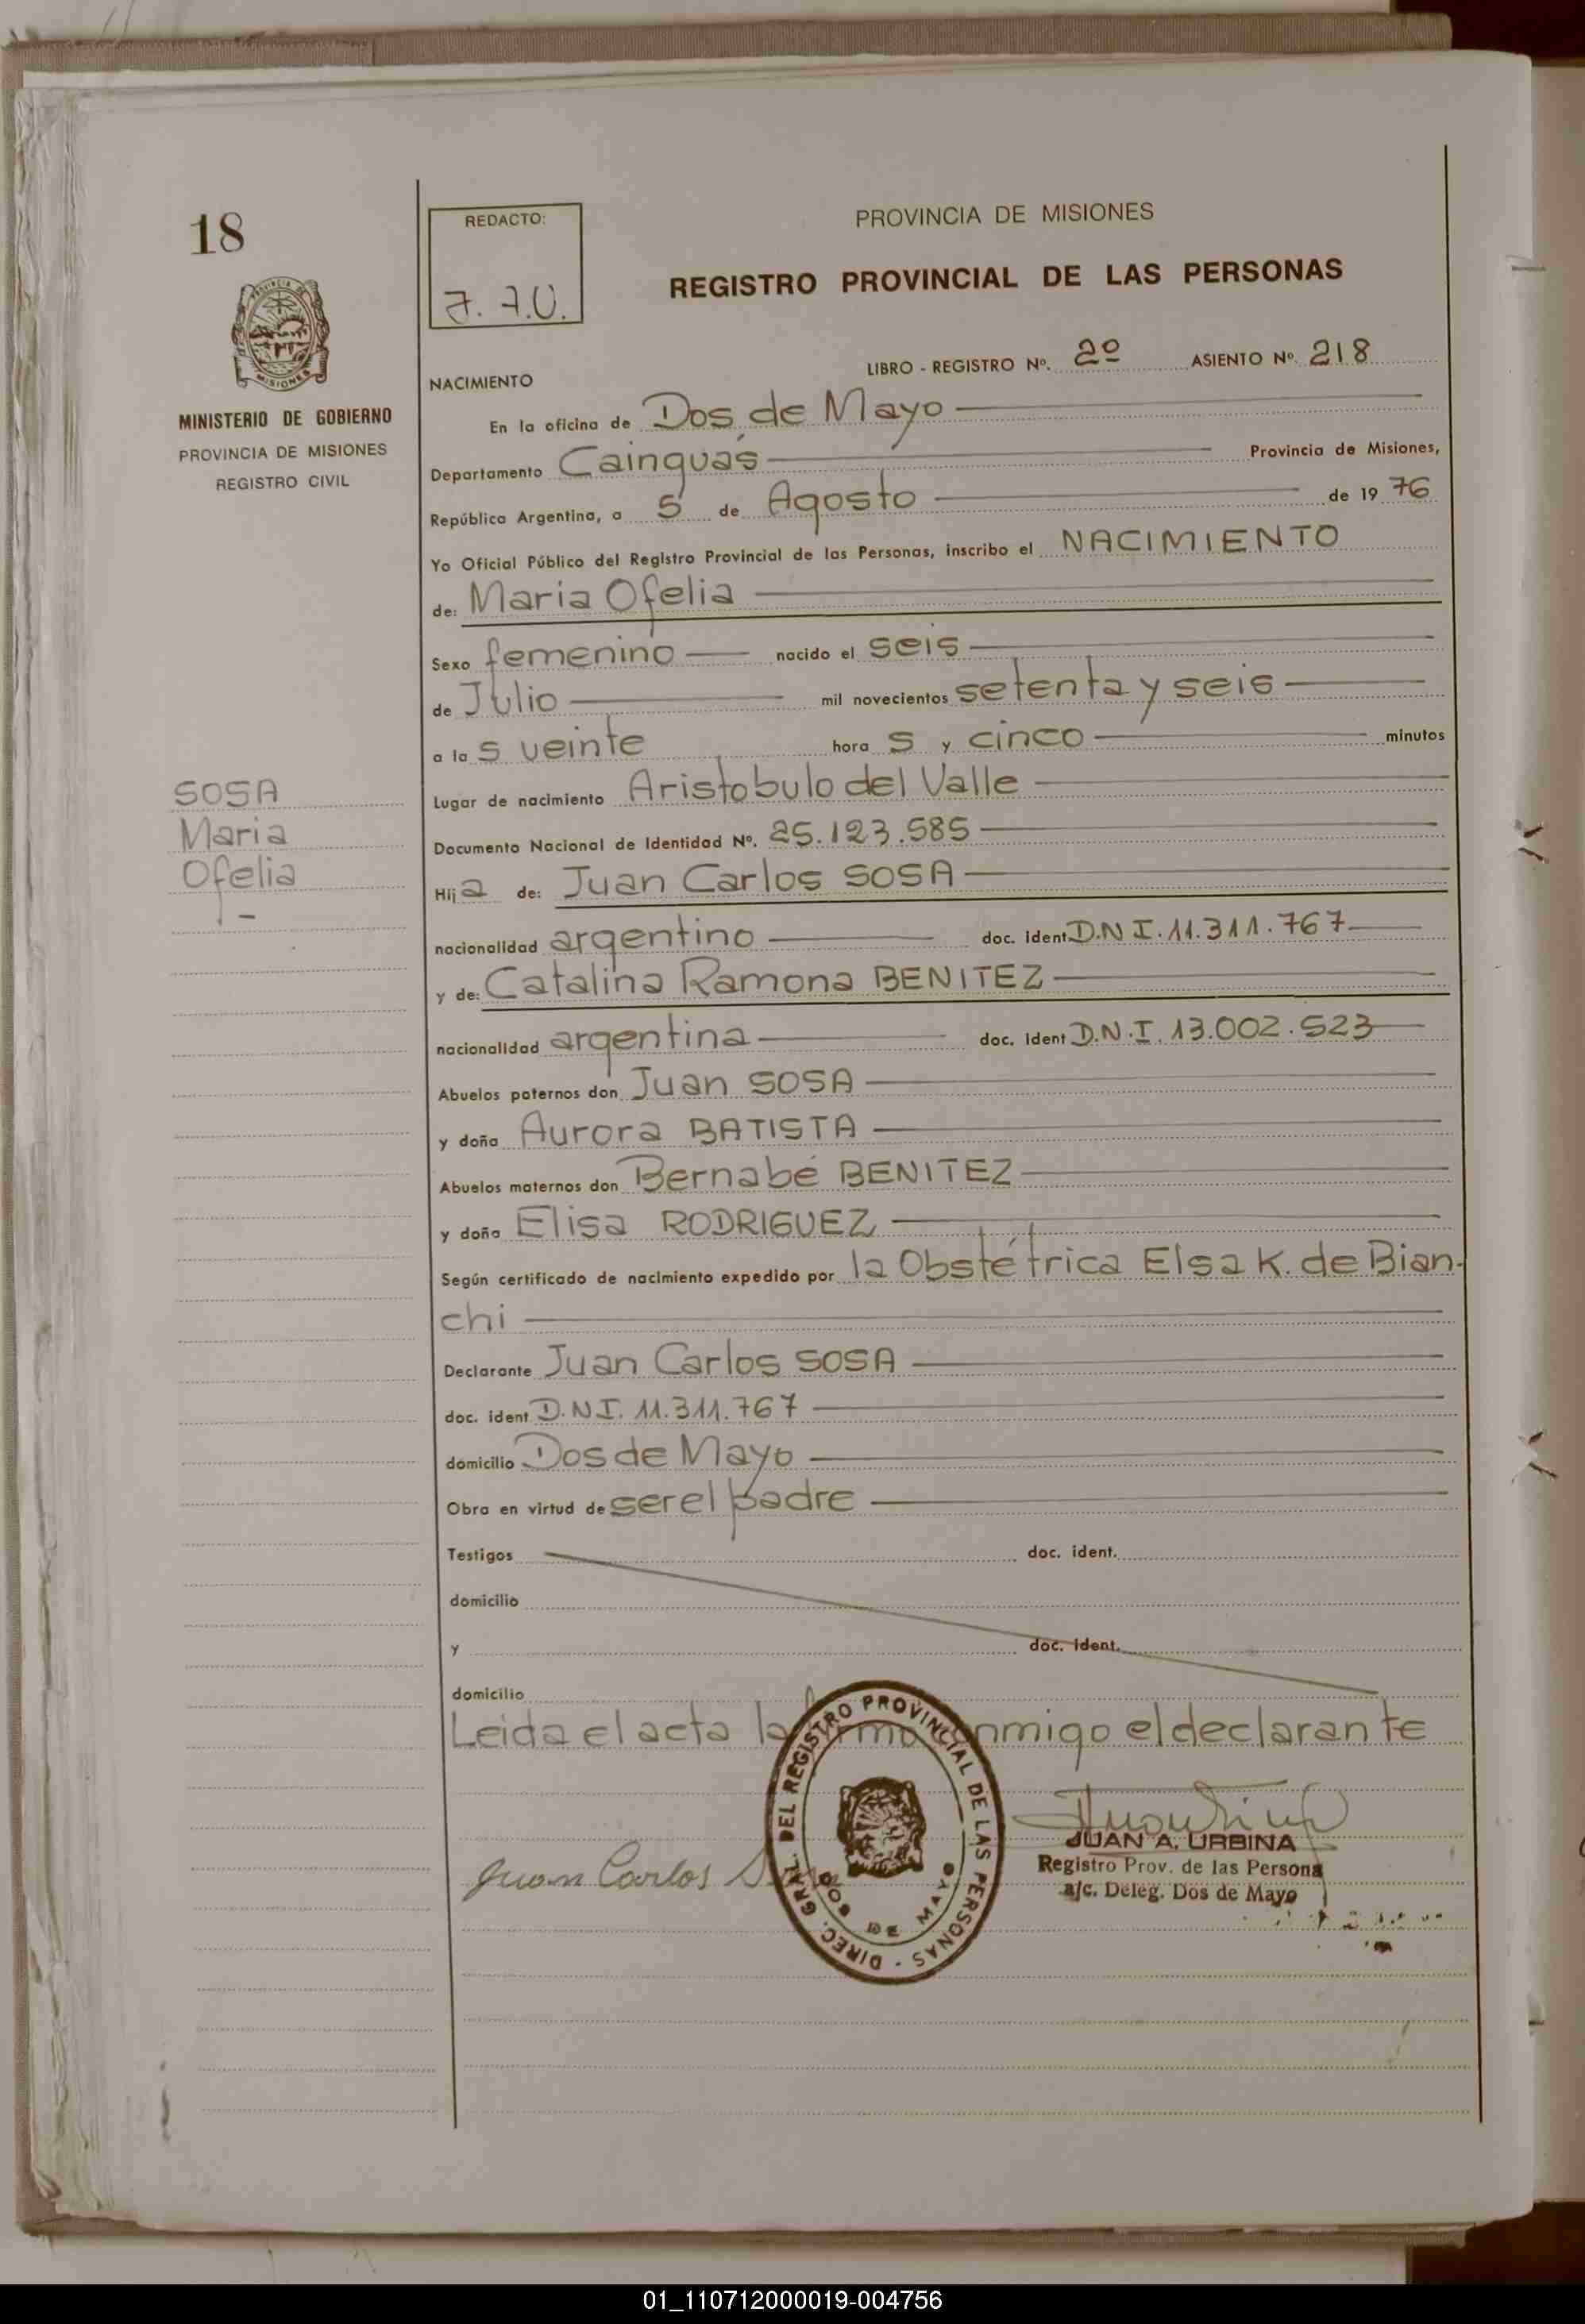 18
REDACTO:
J. A.U.
PROVINCIA DE MISIONES
REGISTRO PROVINCIAL DE LAS PERSONAS
MINISTERIO DE GOBIERNO
PROVINCIA DE MISIONES
REGISTRO CIVIL
LIBRO - REGISTRO Nº. 2º ASIENTO Nº. 218
NACIMIENTO
En la oficina de Dos de Mayo
Departamento Cainguás Provincia de Misiones,
República Argentina, a 5 de Agosto de 19 76
Yo Oficial Público del Registro Provincial de las Personas, inscribo el NACIMIENTO
de: Maria Ofelia
Sexo femenino nacido el seis
de Julio mil novecientos setenta y seis
a la s veinte hora s y cinco minutos
SOSA
Maria
Ofelia
Lugar de nacimiento Aristobulo del Valle
Documento Nacional de Identidad Nº. 25.123.585
Hij a de: Juan Carlos SOSA
nacionalidad argentino doc. ident D.N I. 11.311.767
y de: Catalina Ramona BENITEZ
nacionalidad argentina doc. ident D.N.I. 13.002.523
Abuelos paternos don Juan SOSA
y doña Aurora BATISTA
Abuelos maternos don Bernabé BENITEZ
y doña Elisa RODRIGUEZ
Según certificado de nacimiento expedido por la Obstétrica Elsa K. de Bian-
chi
Declarante Juan Carlos SOSA
doc. ident D.N I. 11.311.767
domicilio Dos de Mayo
Obra en virtud de ser el padre
Testigos doc. ident.
domicilio
y doc. ident.
domicilio
Leida el acta la firma conmigo el declarante
DIREC. GRAL. DEL REGISTRO PROVINCIAL DE LAS PERSONAS -
DOS DE MAYO
Juan Carlos Sosa
JUAN A. URBINA
Registro Prov. de las Persona
a/c. Deleg. Dos de Mayo
01_110712000019-004756